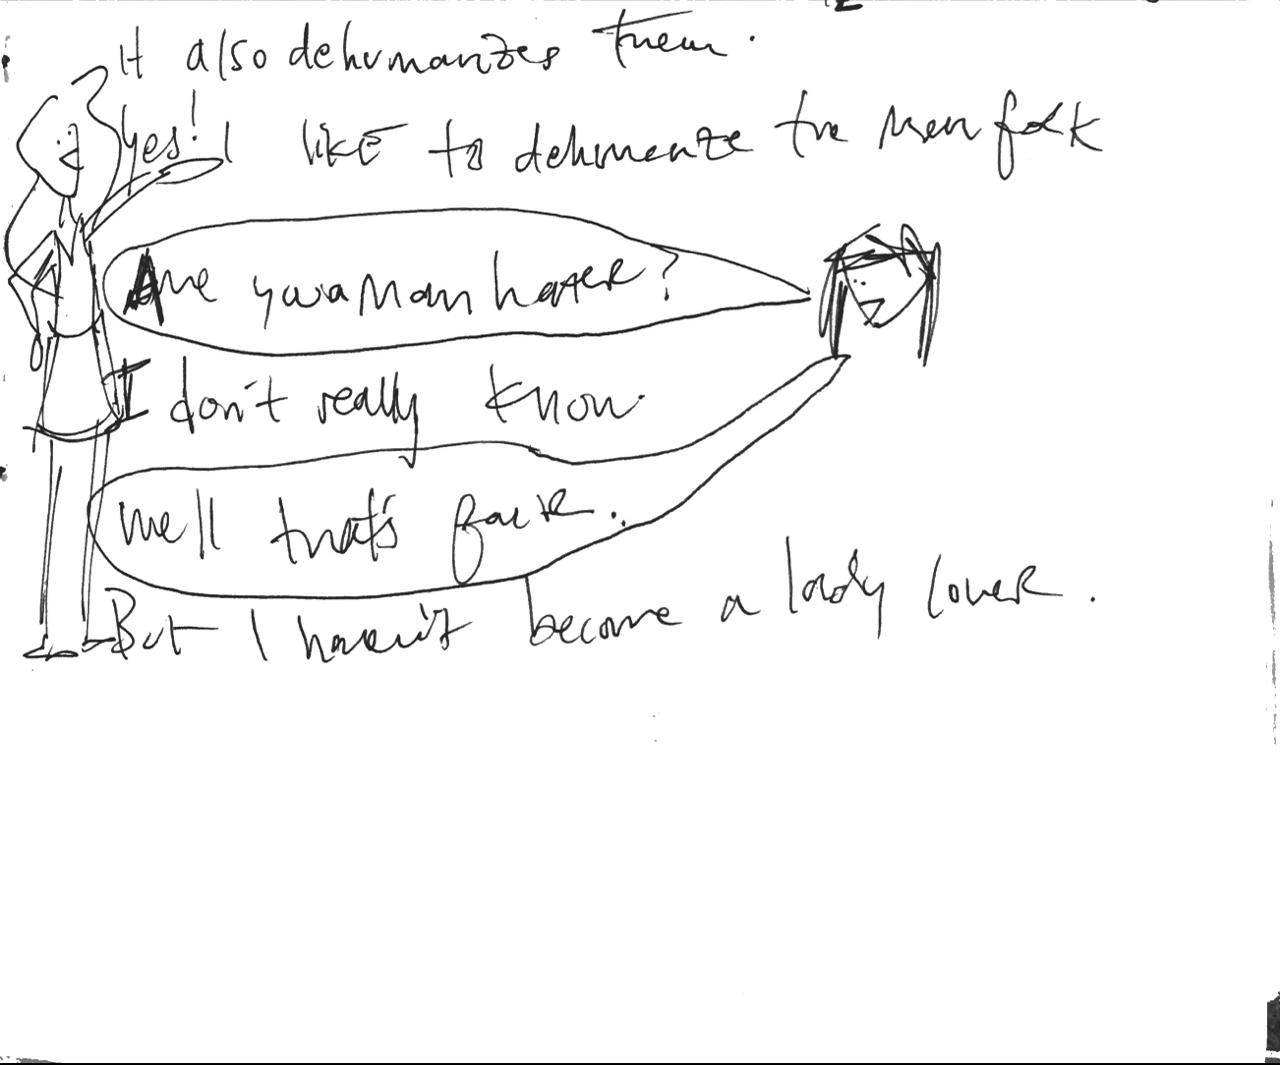 It also dehumanizes them.
Yes! I like to dehumenze the men folk
Are you a Man hater?
I don't really know.
Well that's fair.
But I haven't become a lady lover.